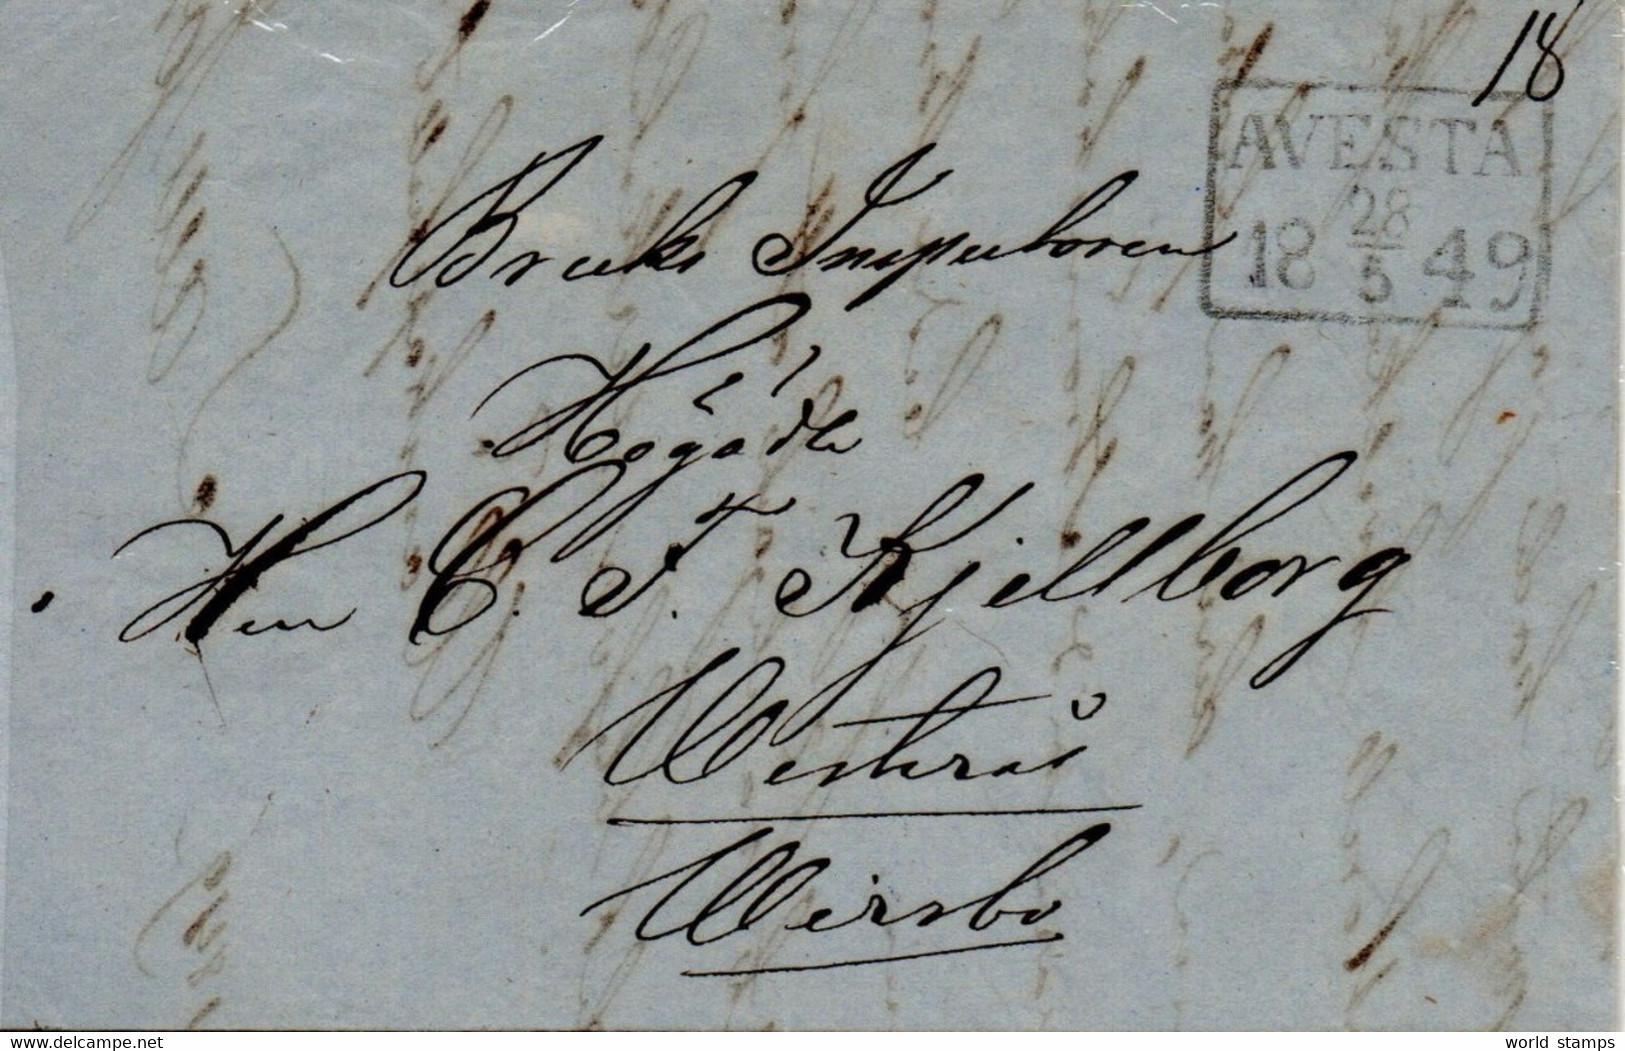 18
AVESTA
28
18 5 49
Bruks Inspectoren
Högädle
Herr C. F. Kjellborg
Westerås
Wirsbo
www.delcampe.net
world stamps